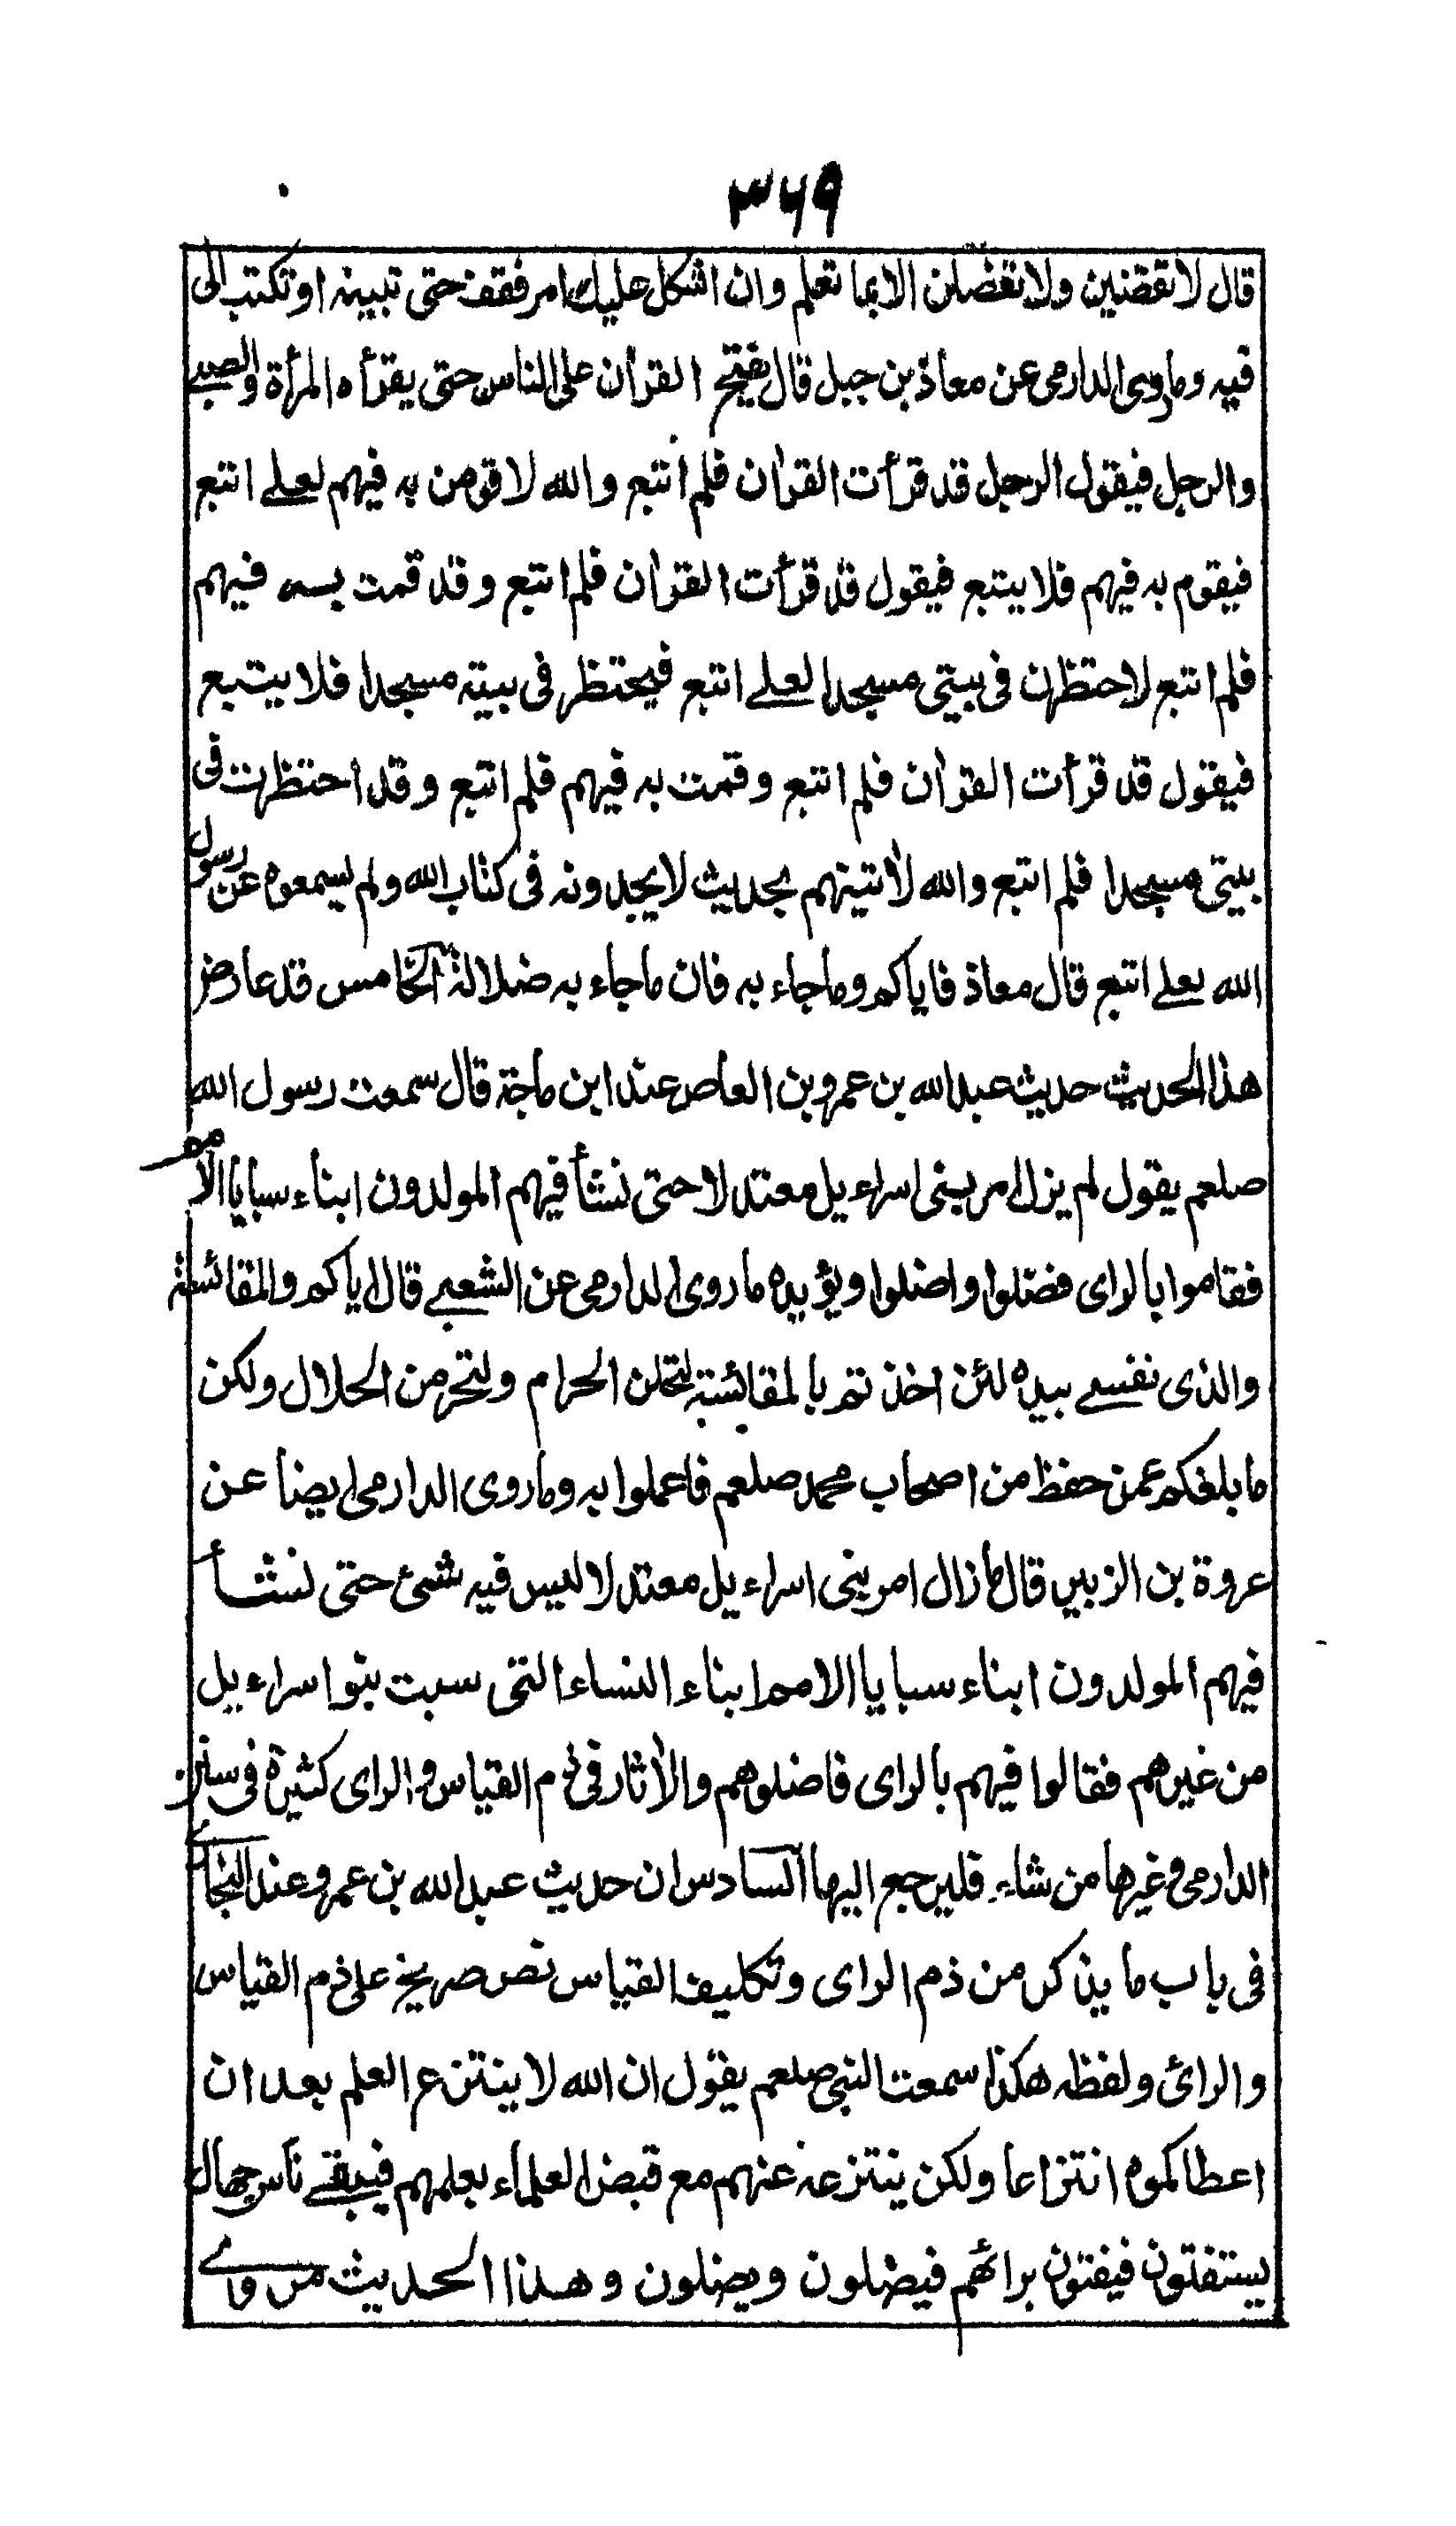 ۳۶۹
قال لا تقضين ولا تفصلن الا بما تعلم وان اشكل عليك امر فقف حتى تبينه او تكتب الى
فيه وما روى الدارمى عن معاذ بن جبل قال يفتح القرآن على الناس حتى يقرأه المرأة والصبى
والرجل فيقول الرجل قد قرأت القرآن فلم اتبع والله لاقومن به فيهم لعلى اتبع
فيقوم به فيهم فلا يتبع فيقول قد قرأت القرآن فلم اتبع وقد قمت به فيهم
فلم اتبع لاحتظرن فى بيتى مسجدا لعلى اتبع فيحتظر فى بيته مسجدا فلا يتبع
فيقول قد قرأت القرآن فلم اتبع وقمت به فيهم فلم اتبع وقد احتظرت فى
بيتى مسجدا فلم اتبع والله لآتينهم بحديث لا يجدونه فى كتاب الله ولم يسمعوه عن رسول
الله لعلى اتبع قال معاذ فاياكم وما جاء به فان ما جاء به ضلالة الخامس قد عارض
هذا الحديث حديث عبد الله بن عمرو بن العاص عند ابن ماجة قال سمعت رسول الله
صلعم يقول لم يزل امر بنى اسراءيل معتدلا حتى نشأ فيهم المولدون ابناء سبايا الامم
فقاموا بالراى فضلوا واضلوا ويؤيده ما روى الدارمى عن الشعبى قال اياكم والمقائسة
والذى نفسى بيده لئن اخذتم بالمقائسة لتحلن الحرام ولتحرمن الحلال ولكن
ما بلغكم عمن حفظ من اصحاب محمد صلعم فاعملوا به وما روى الدارمى ايضا عن
عروة بن الزبير قال ما زال امر بنى اسراءيل معتدلا ليس فيه شئ حتى نشأ
فيهم المولدون ابناء سبايا الامم ابناء النساء التى سبت بنوا سراءيل
من غيرهم فقالوا فيهم بالراى فاضلوهم والآثار فى ذم القياس والراى كثيرة فى سنن
الدارمى وغيرها من شاء فليرجع اليها السادس ان حديث عبد الله بن عمرو عند البخارى
فى باب ما يذكر من ذم الراى وتكليف القياس نص صريح على ذم القياس
والرائ ولفظه هكذا سمعت النبى صلعم يقول ان الله لا ينتزع العلم بعد ان
اعطاكموه انتزاعا ولكن ينتزعه عنهم مع قبض العلماء بعلمهم فيبقى ناس جهال
يستفتون فيفتون برائهم فيضلون ويضلون وهذا الحديث مروى